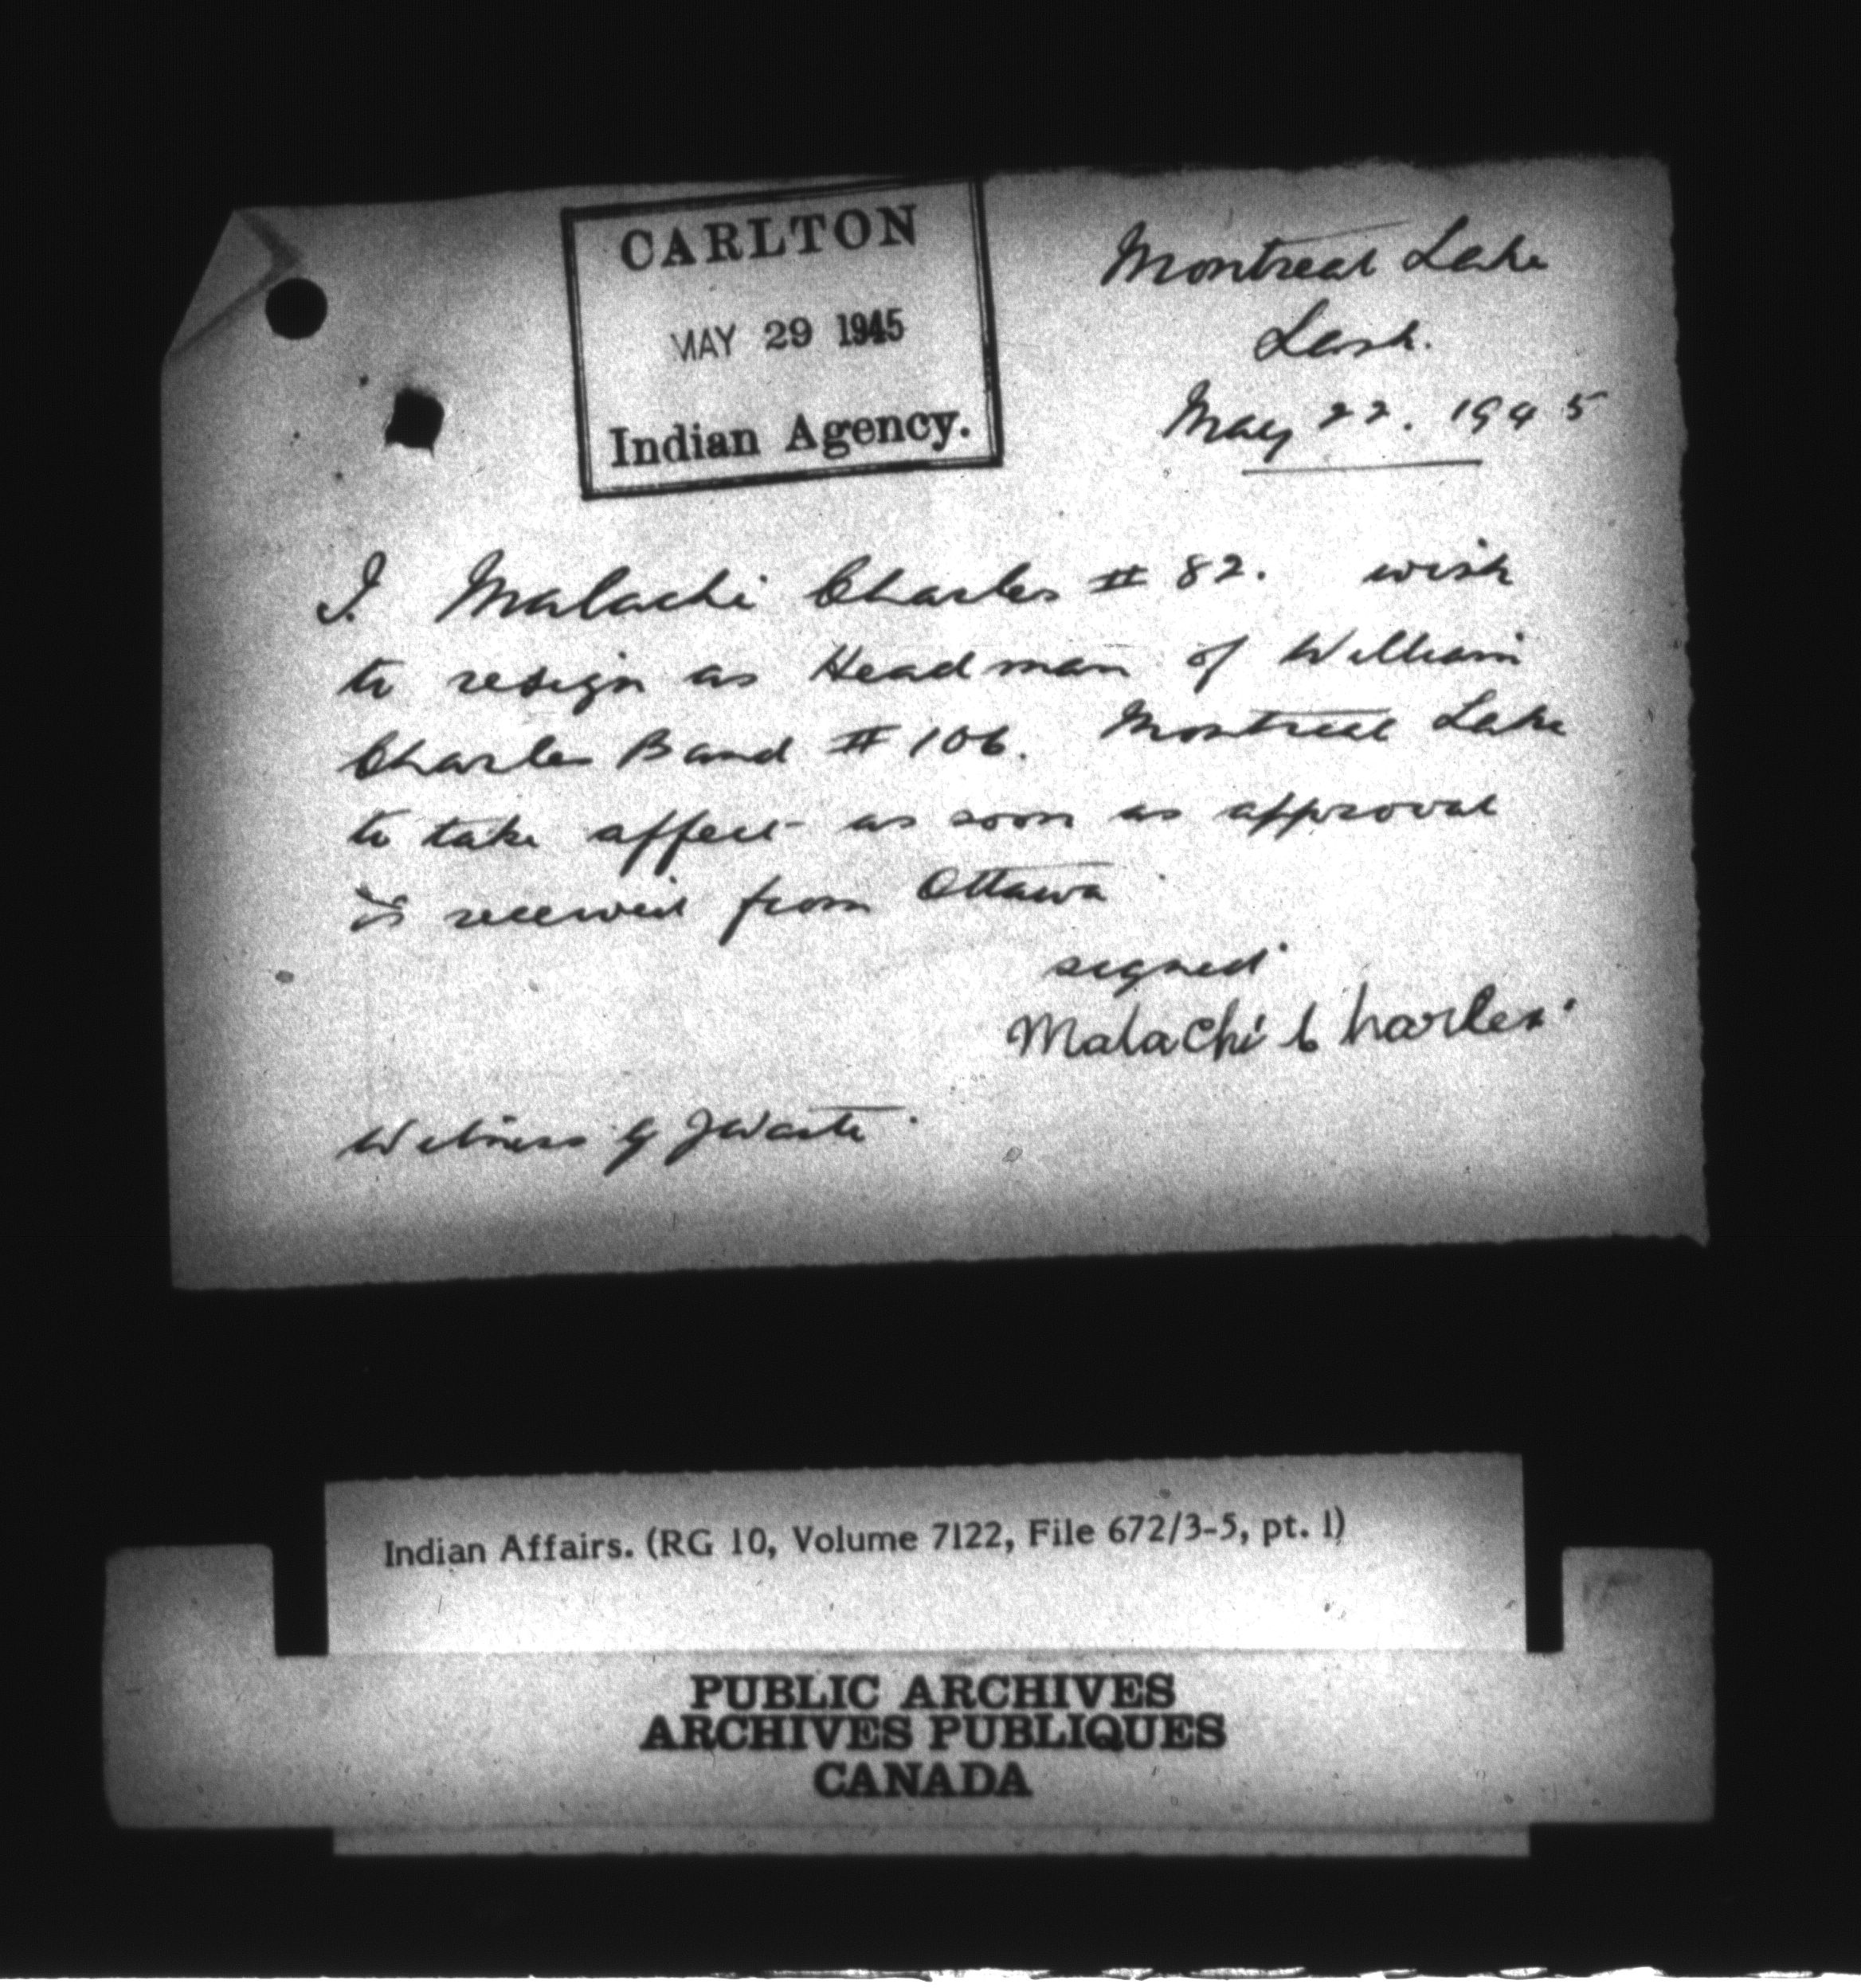 CARLTON
MAY 29 1945
Indian Agency.
Montreal Lake
Sask.
May 22. 1945
I. Malachi Charles # 82. wish
to resign as Headman of William
Charles Band # 106. Montreal Lake
to take affect as soon as approval
is received from Ottawa
signed
Malachi Charles.
Witness
Indian Affairs. (RG 10, Volume 7122, File 672/3-5, pt. 1)
PUBLIC ARCHIVES
ARCHIVES PUBLIQUES
CANADA